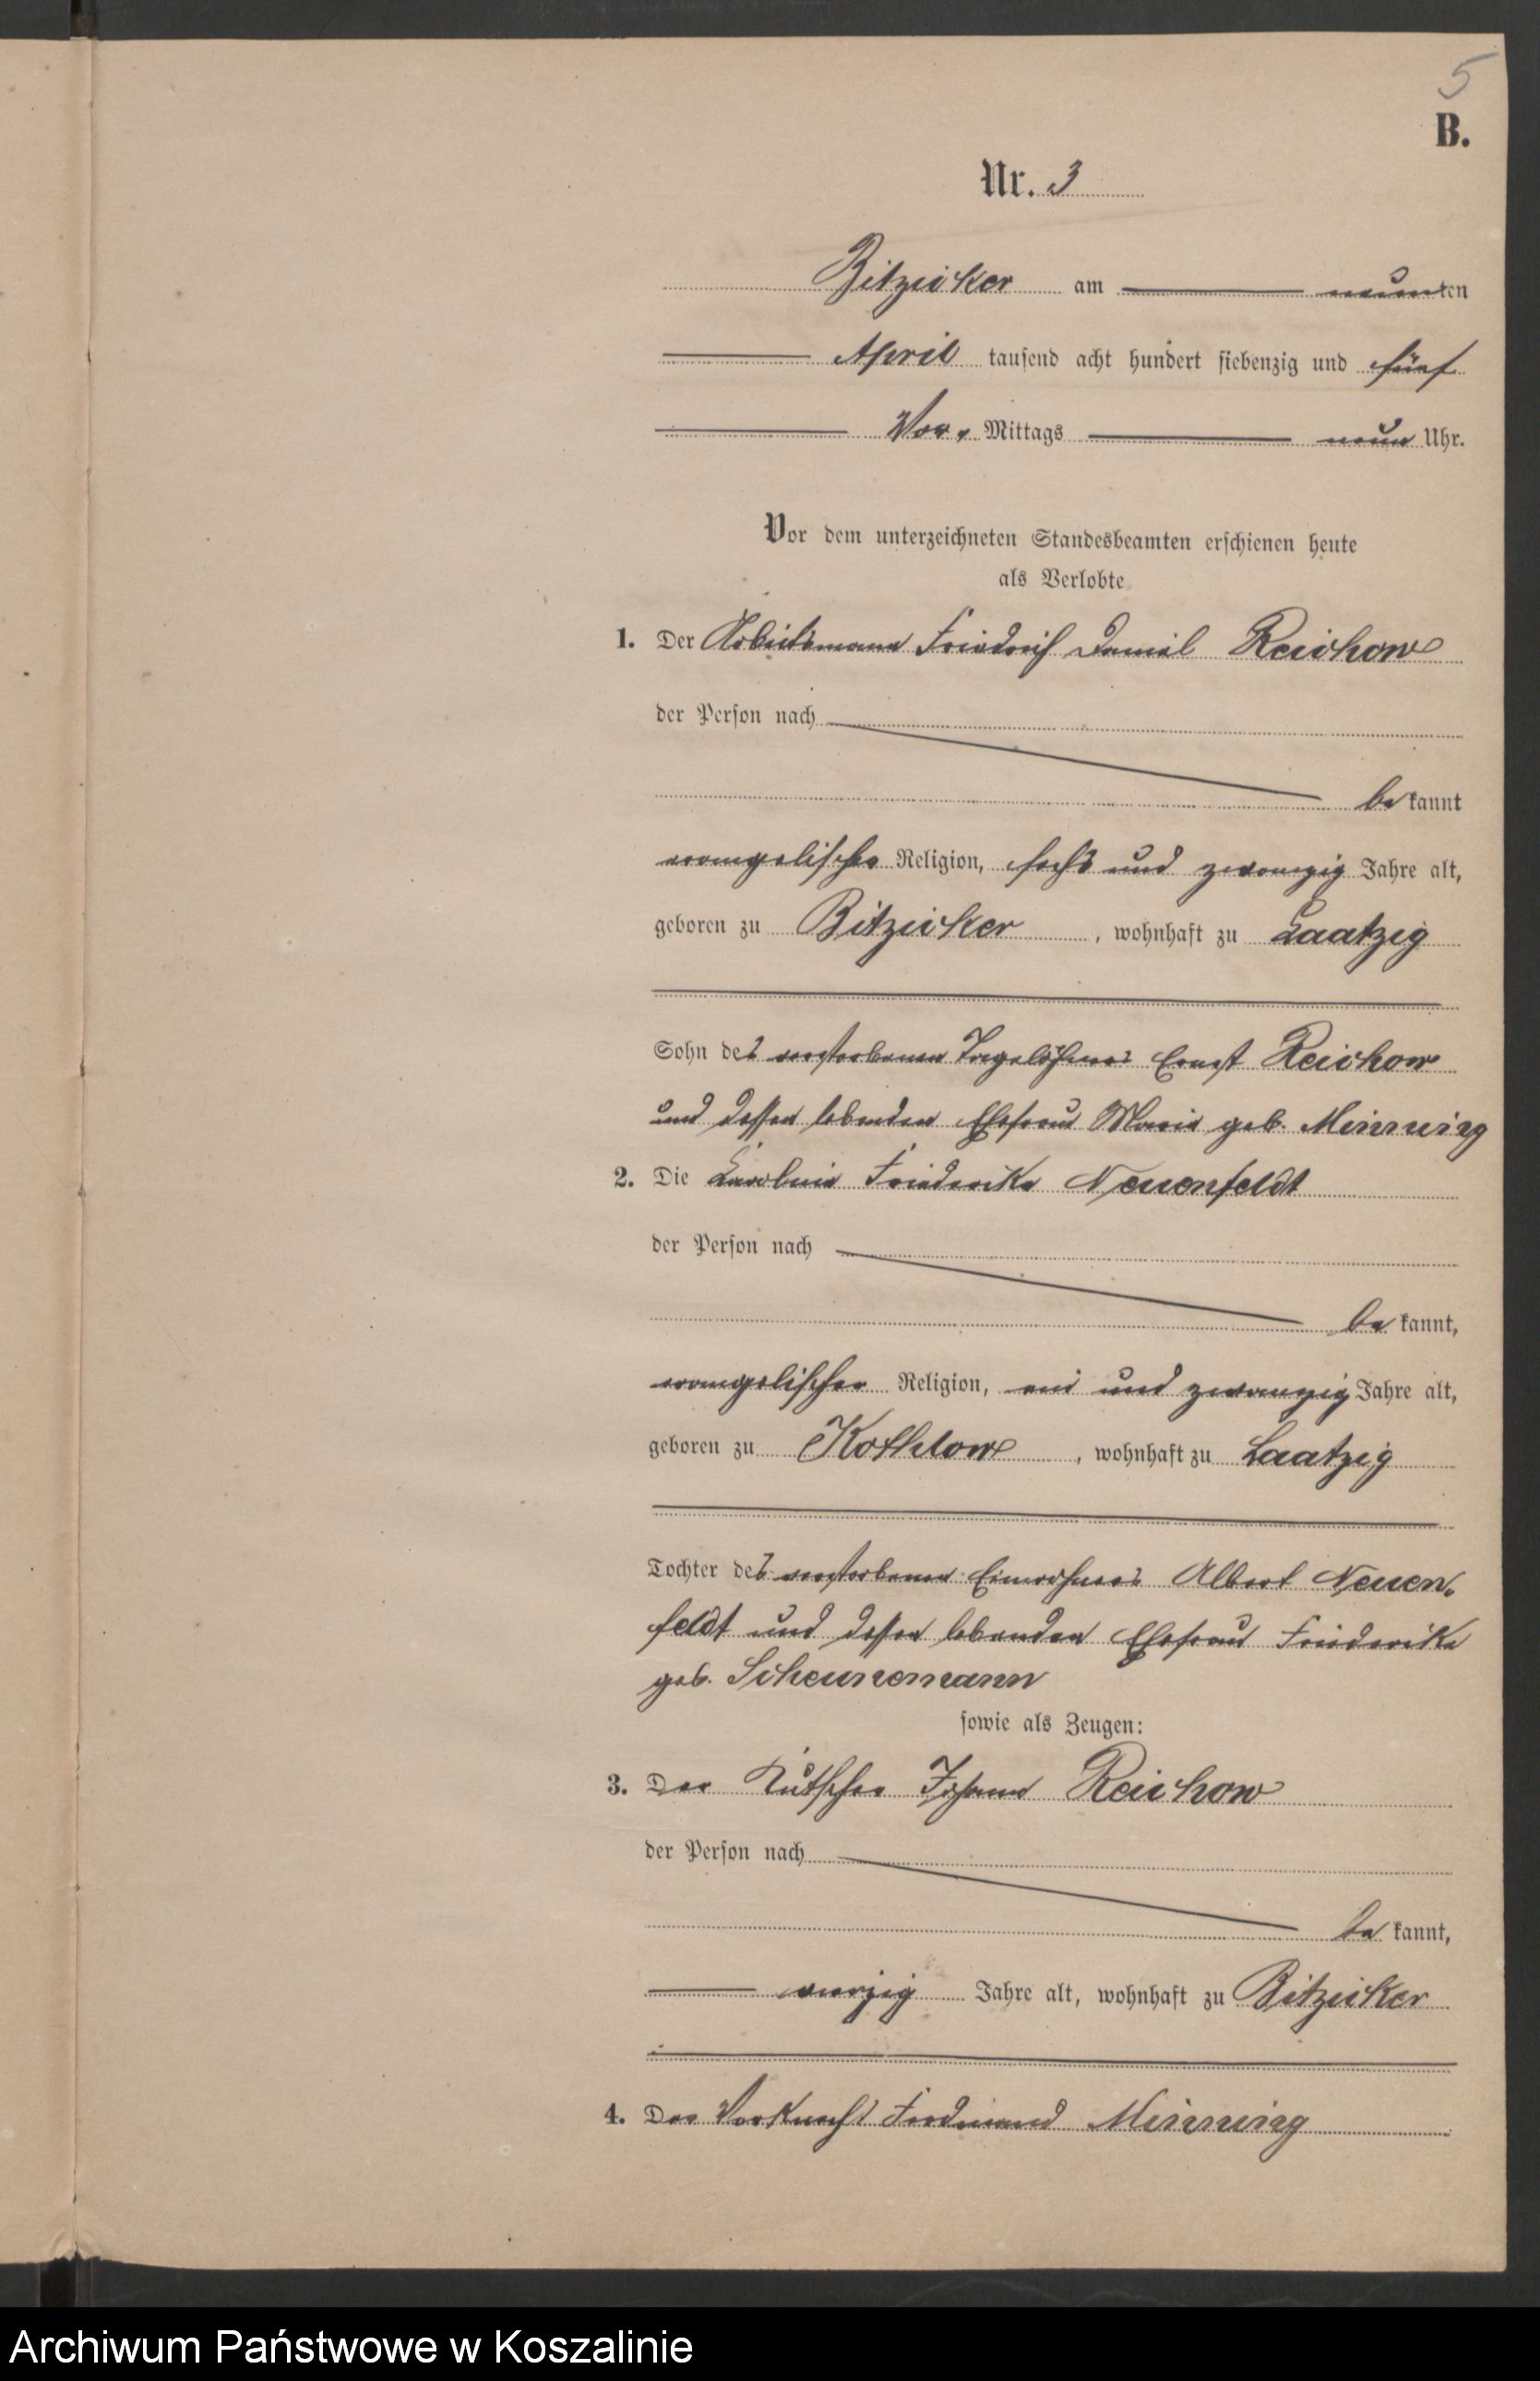 5
B.
Nr. 3
Bitzicker am neunten
April tausend acht hundert siebenzig und fünf
Vor Mittags neun Uhr.
Vor dem unterzeichneten Standesbeamten erschienen heute
als Verlobte
1. Der Arbeitsmann Friedrich Daniel Reichow
der Person nach
be kannt
evangelischer Religion, sechs und zwanzig Jahre alt,
geboren zu Bitzicker, wohnhaft zu Laatzig
Sohn des verstorbenen Tagelöhners Ernst Reichow
und dessen lebenden Ehefrau Marie geb. Minning
2. Die Karoline Friederike Neuenfeldt
der Person nach
be kannt,
evangelischer Religion, ein und zwanzig Jahre alt,
geboren zu Kothlow, wohnhaft zu Laatzig
Tochter des verstorbenen Einwohners Albert Neuen-
feldt und dessen lebenden Ehefrau Friederike
geb. Scheunemann
sowie als Zeugen:
3. Der Kutscher Johann Reichow
der Person nach
be kannt,
vierzig Jahre alt, wohnhaft zu Bitzicker
4. Der Vorknecht Ferdinand Minning
Archiwum Państwowe w Koszalinie